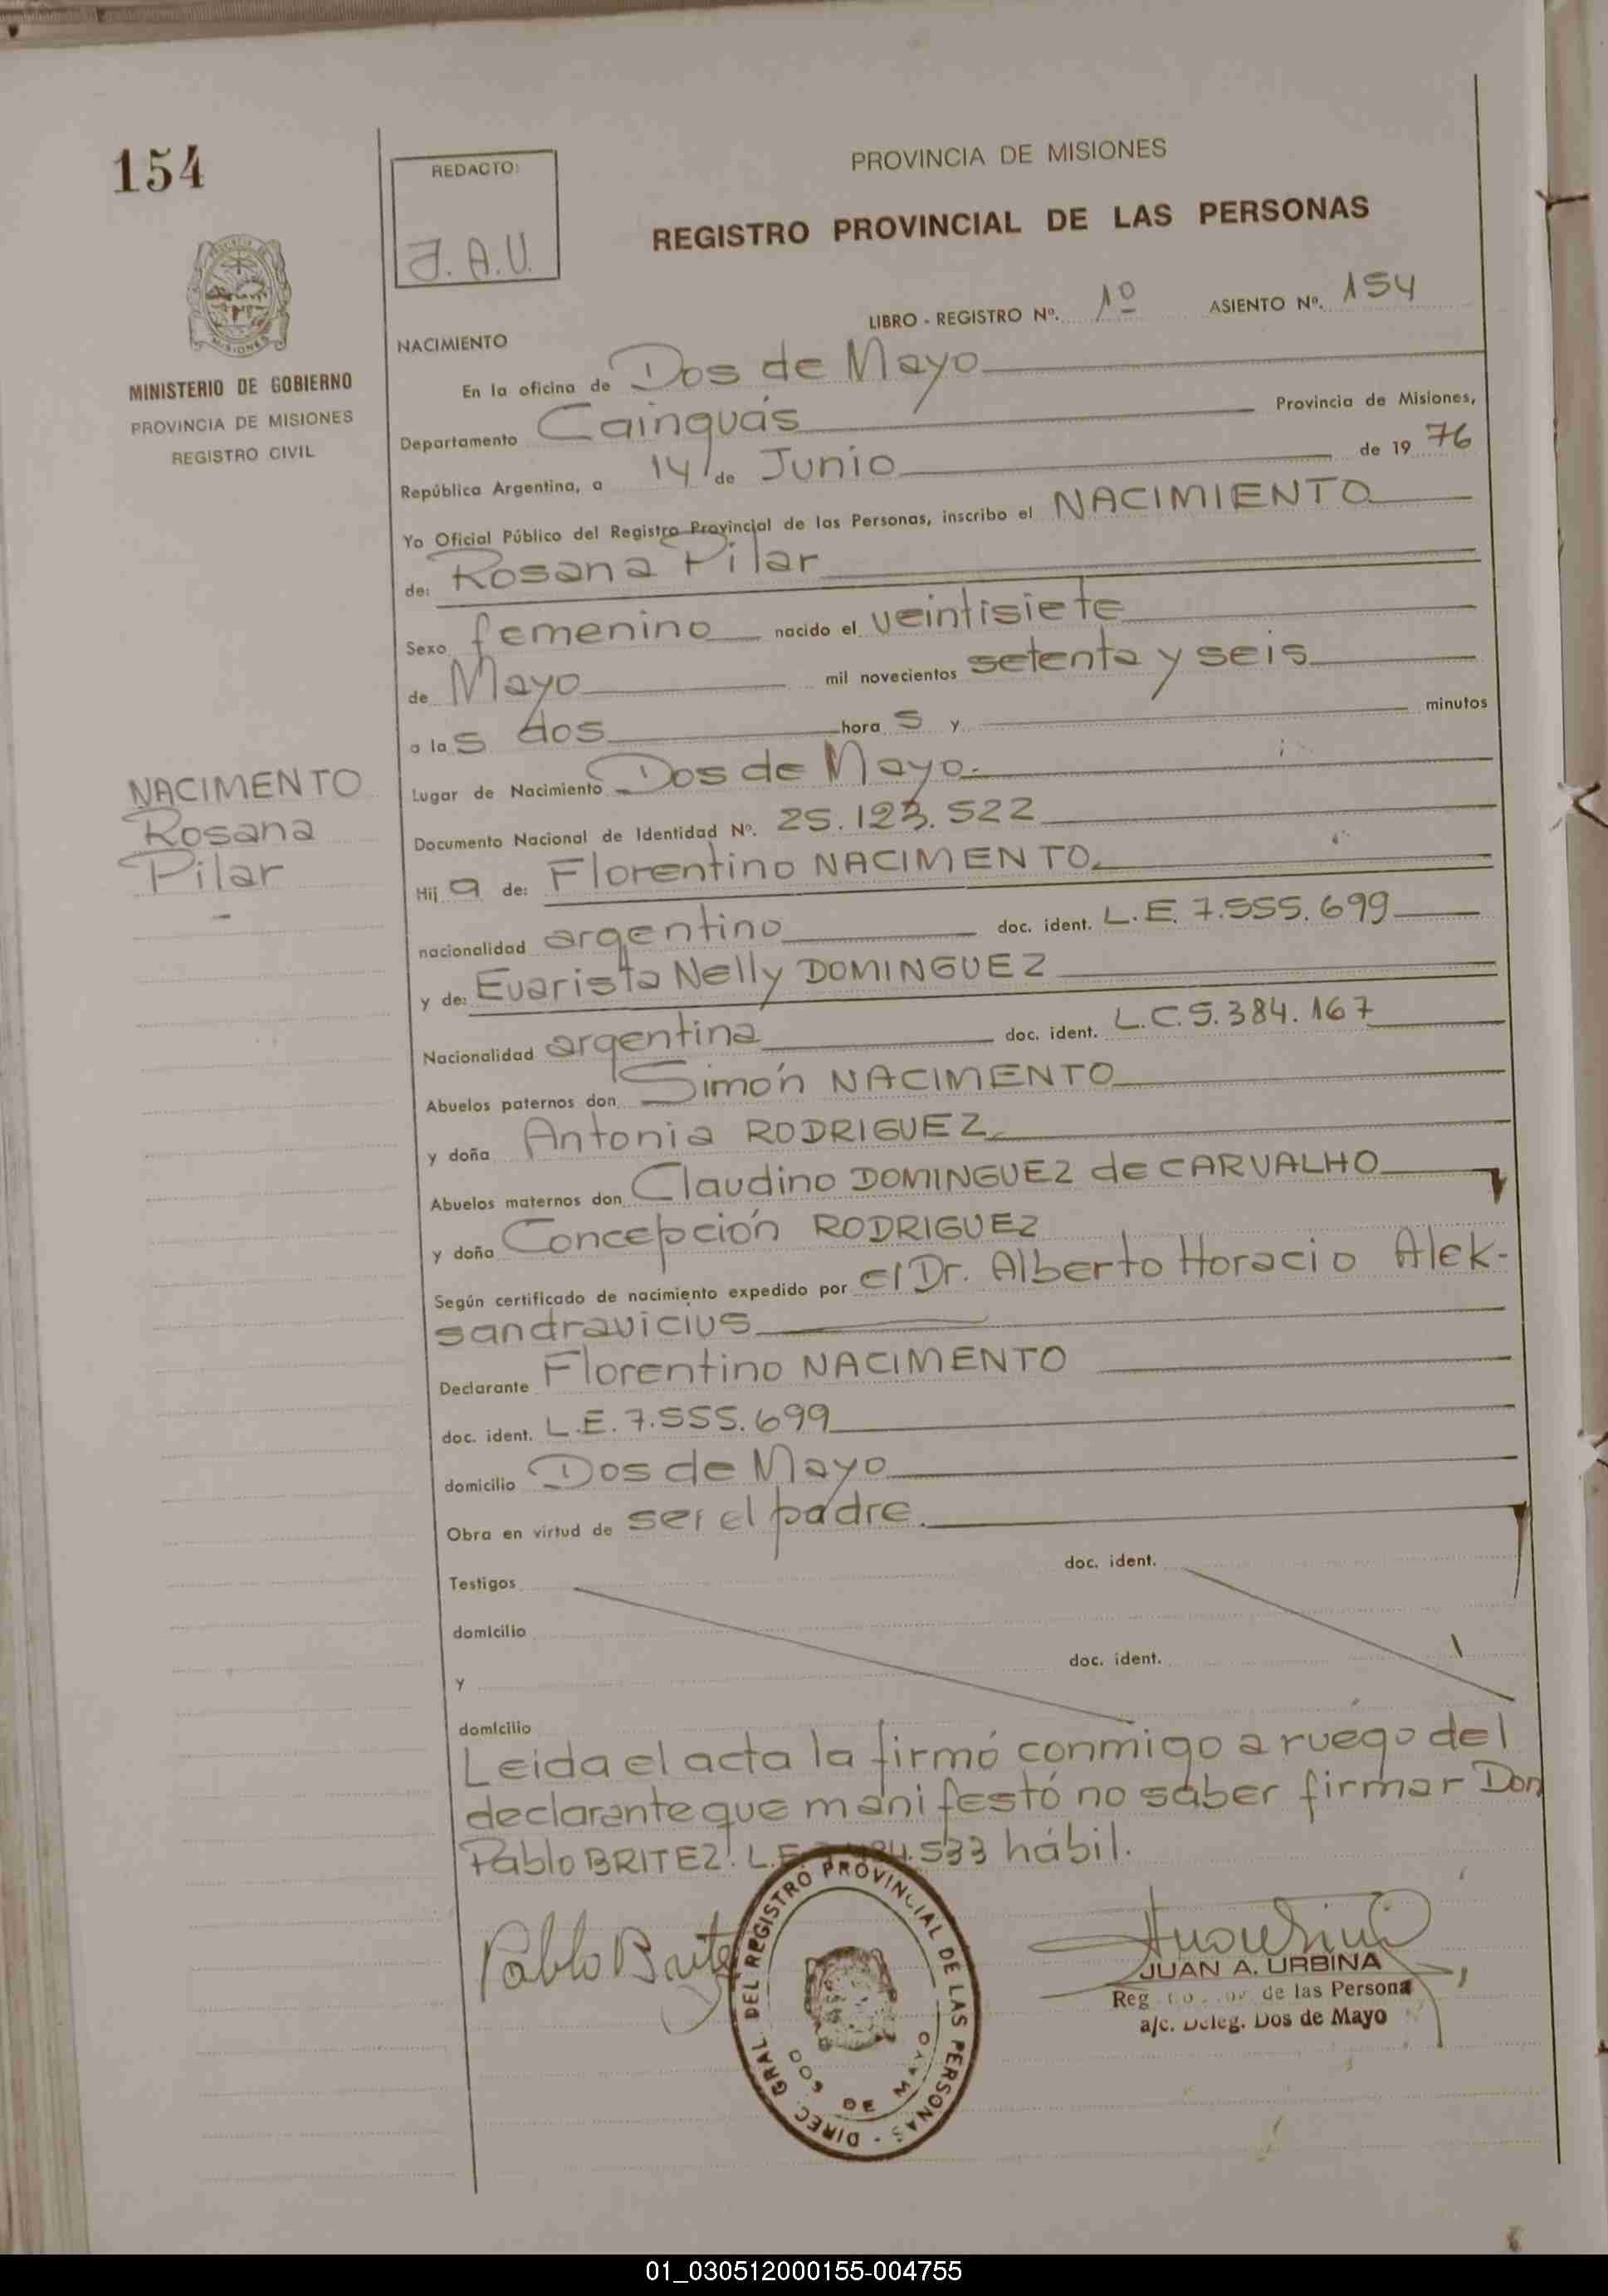 154
REDACTO:
J. A. U.
PROVINCIA DE MISIONES
REGISTRO PROVINCIAL DE LAS PERSONAS
LIBRO - REGISTRO Nº. 1º ASIENTO Nº. 154
PROVINCIA DE
MISIONES
MINISTERIO DE GOBIERNO
PROVINCIA DE MISIONES
REGISTRO CIVIL
NACIMIENTO
En la oficina de Dos de Mayo
Departamento Cainguás Provincia de Misiones,
República Argentina, a 14 de Junio de 1976
Yo Oficial Público del Registro Provincial de las Personas, inscribo el NACIMIENTO
de: Rosana Pilar
Sexo femenino nacido el veintisiete
de Mayo mil novecientos setenta y seis
a las dos horas y minutos
Lugar de Nacimiento Dos de Mayo.-
Documento Nacional de Identidad Nº. 25.123.522
NACIMENTO
Rosana
Pilar
-
Hija de: Florentino NACIMENTO
nacionalidad argentino doc. ident. L.E. 7.555.699
y de: Evarista Nelly DOMINGUEZ
Nacionalidad argentina doc. ident. L.C. 5.384.167
Abuelos paternos don Simón NACIMENTO
y doña Antonia RODRIGUEZ
Abuelos maternos don Claudino DOMINGUEZ de CARVALHO
y doña Concepción RODRIGUEZ
Según certificado de nacimiento expedido por el Dr. Alberto Horacio Alek-
sandravicius
Declarante Florentino NACIMENTO
doc. ident. L.E. 7.555.699
domicilio Dos de Mayo
Obra en virtud de ser el padre.
Testigos doc. ident.
domicilio
y doc. ident.
domicilio
Leida el acta la firmó conmigo a ruego del
declarante que manifestó no saber firmar Don
Pablo BRITEZ. L.E. 533 hábil.
Pablo Britez
DIREC. GRAL. DEL REGISTRO PROVINCIAL DE LAS PERSONAS -
DOS DE MAYO
JUAN A. URBINA
Reg de las Persona
a/c. Deleg. Dos de Mayo
01_030512000155-004755